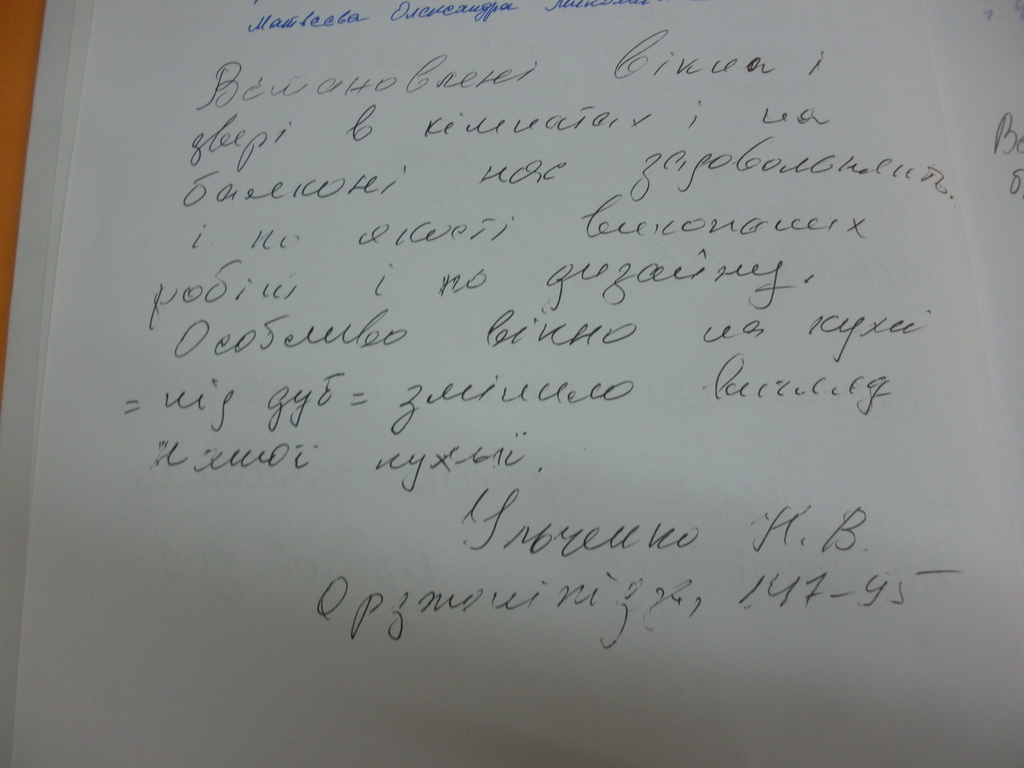 Матвєєва Олександра
Встановлені вікна і
двері в кімнатах і на
балконі нас задовольняють
і по якості виконаних
робіт і по дизайну.
Особливо вікно на кухні
= під дуб = змінило вигляд
нашої кухні.
Ульченко Н. В.
147-95